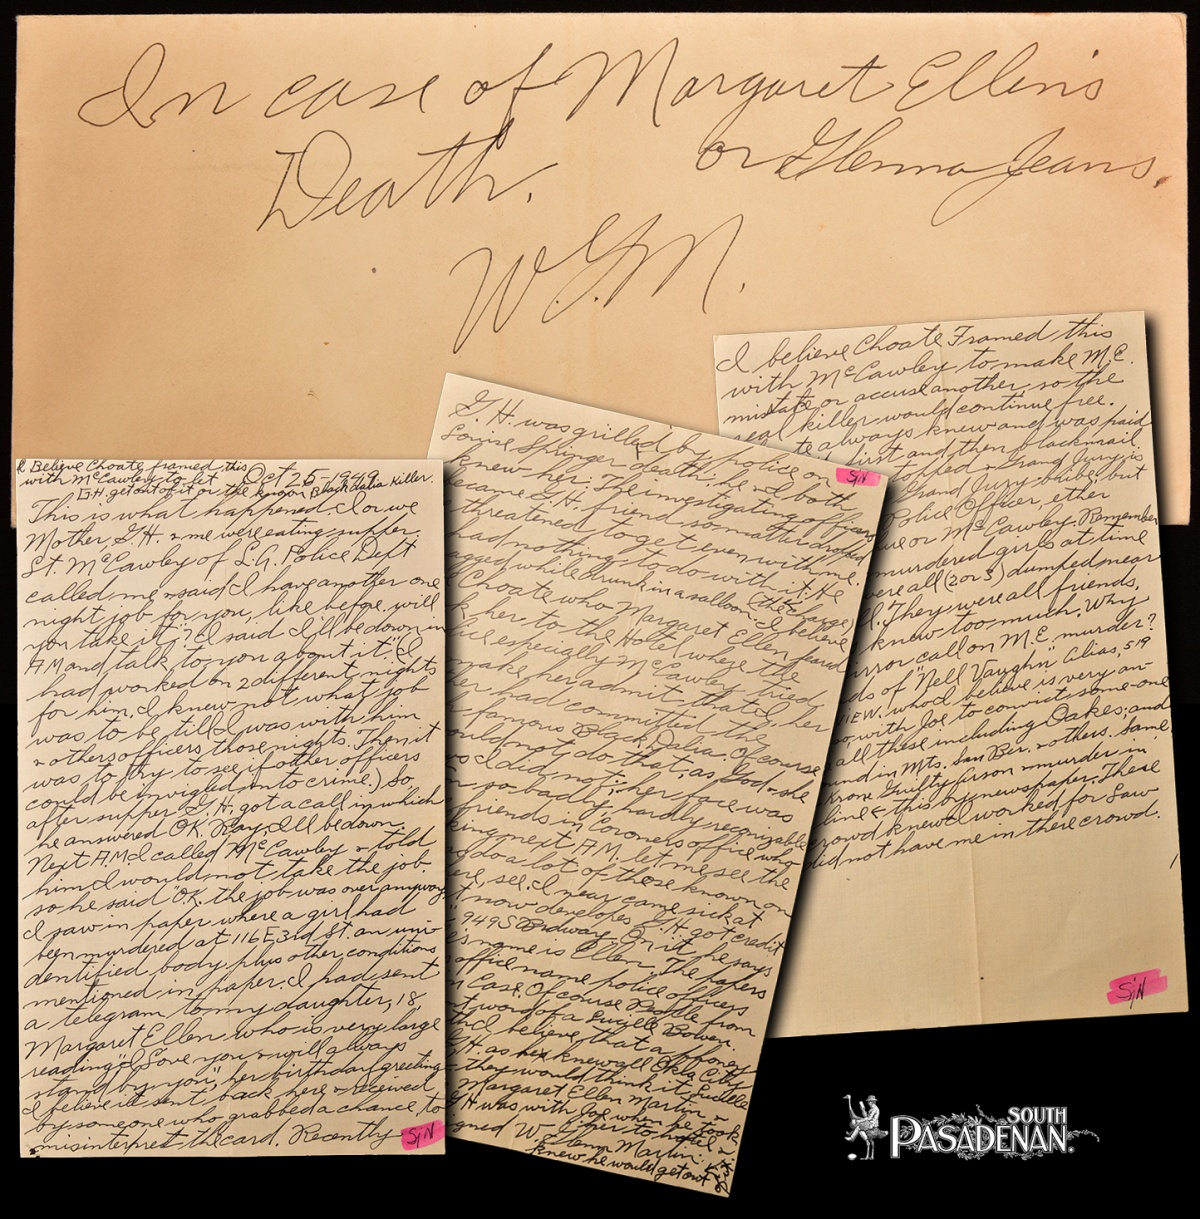 In case of Margaret Ellen's
Death. or Glenna Jeans.
W.G.M.
I Believe Choate framed this
with McCawley to let Oct 25 1949
G.H. get out of it or the known Black dalia Killer.
This is what happened I or we
Mother G.H. & me were eating supper.
Lt. McCawley of L.A. Police Dept
called me & said I have another one
night job for you, like before. will
you take it? I said I'll be down in
A M and talk to you about it." (I
had worked on 2 different nights
for him. I knew not what job
was to be till I was with him
& others officers those nights. Then it
was to try to see if other officers
could be inveigled into crime.) So
after supper G.H. got a call in which
he answered OK. Ray, I'll be down.
Next A.M. I called McCawley & told
him I would not take the job.
so he said "O.K. the job was over anyway
I saw in paper where a girl had
been murdered at 116 E 3rd St. an uni-
dentified body. plus other conditions
mentioned in paper. I had sent
a telegram to my daughter, 18,
Margaret Ellen who is very large
reading "I Love you & will always
stand by you", her birthday greeting
I believe it sent back here & received
by someone who grabbed a chance to
misinterpret the card. Recently
SjN
G.H. was grilled by police on
Louise Springer death, he & I both
knew her. The investigating officers
became G.H. friend so matter dropped
threatened to get even with me.
had nothing to do with it. He
while drunk in a saloon. I believe
(the large)
Choate who Margaret Ellen feared
her to the Hotel where the
especially McCawley tried
make her admit that I, her
had committed the
famous Black Dalia. Of course
could not do that, as God & she
I did not; her face was
so badly hardly recognizable
friends in Coroners office who
next A.M. let me see the
do a lot of those known on
see. I near came sick at
now developes G.H. got credit
949 S Brdway. In it he says
name is Ellen. The papers
office name police officers
Case. Of course People from
word of a Lucille Bowen.
I believe that a phoney
G.H. as he knew all Okla City
they would think it Lucille
Margaret Ellen Martin &
G.H was with Joe when he took
her to hotel &
W Glenn Martin.
knew he would get out
SjN
I believe Choate Framed this
with McCawley to make M.E.
mistake or accuse another, so the
real killer would continue free.
always knew and was paid
first and then blackmail.
Grand Jury is
Grand Jury bribe but
Police Officer, ether
or McCawley. Remember
murdered girls at time
were all (2 or 3) dumped near
They were all friends,
knew too much. Why
call on M.E. murder?
of "Nell Vaughn" Alias, 519
VIEW. who I believe is very an-
with Joe to convict some-one
all these including Oakes, and
in Mts. San Ber. & others. Same
Guilty person & murder in
line & this by newspaper. These
knew I worked for Law
did not have me in there crowd.
SjN
SOUTH
PASADENAN.